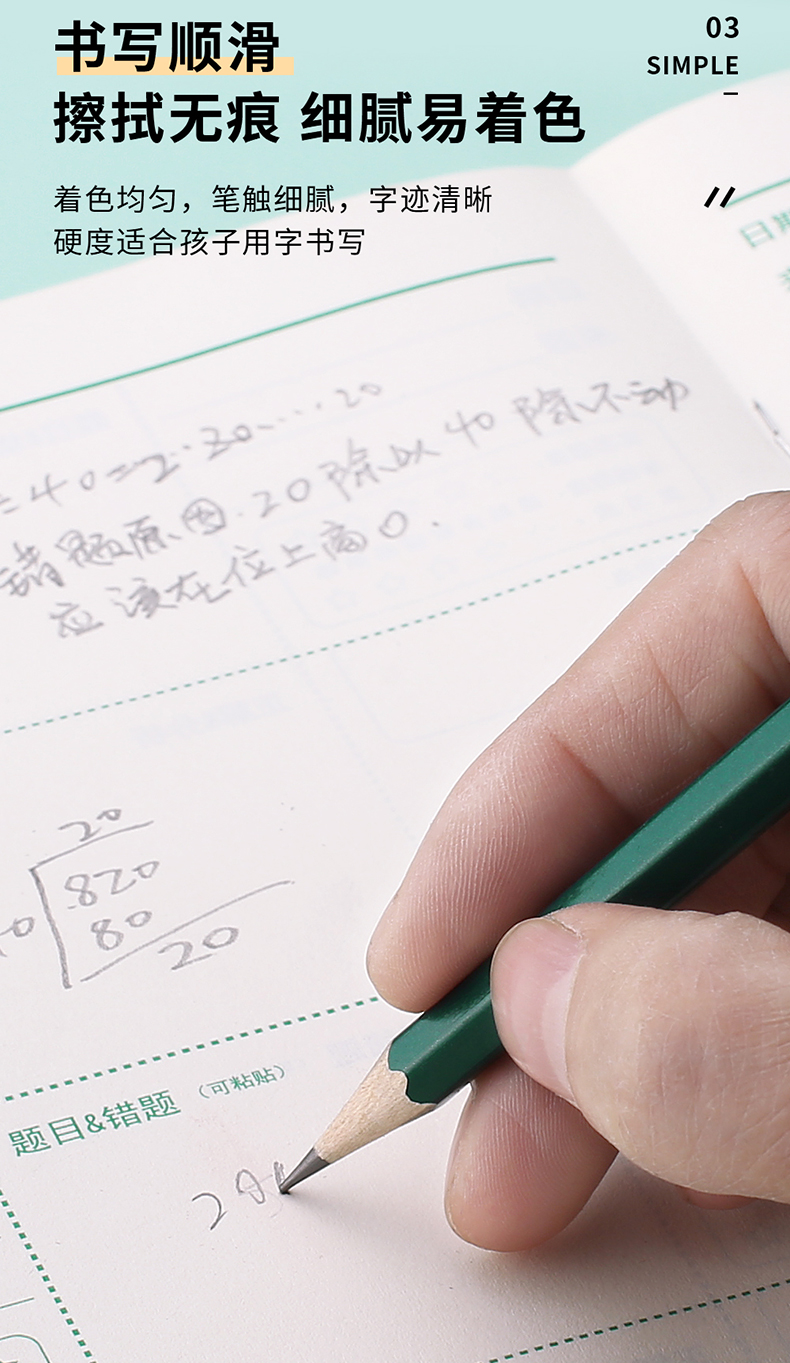 书写顺滑
擦拭无痕 细腻易着色
着色均匀，笔触细腻，字迹清晰
硬度适合孩子用字书写
03
SIMPLE
日期
=40=2·30····20
错题原因.20除以40除不动
应该在位上商0.
20
820
80
20
题目&错题（可粘贴）